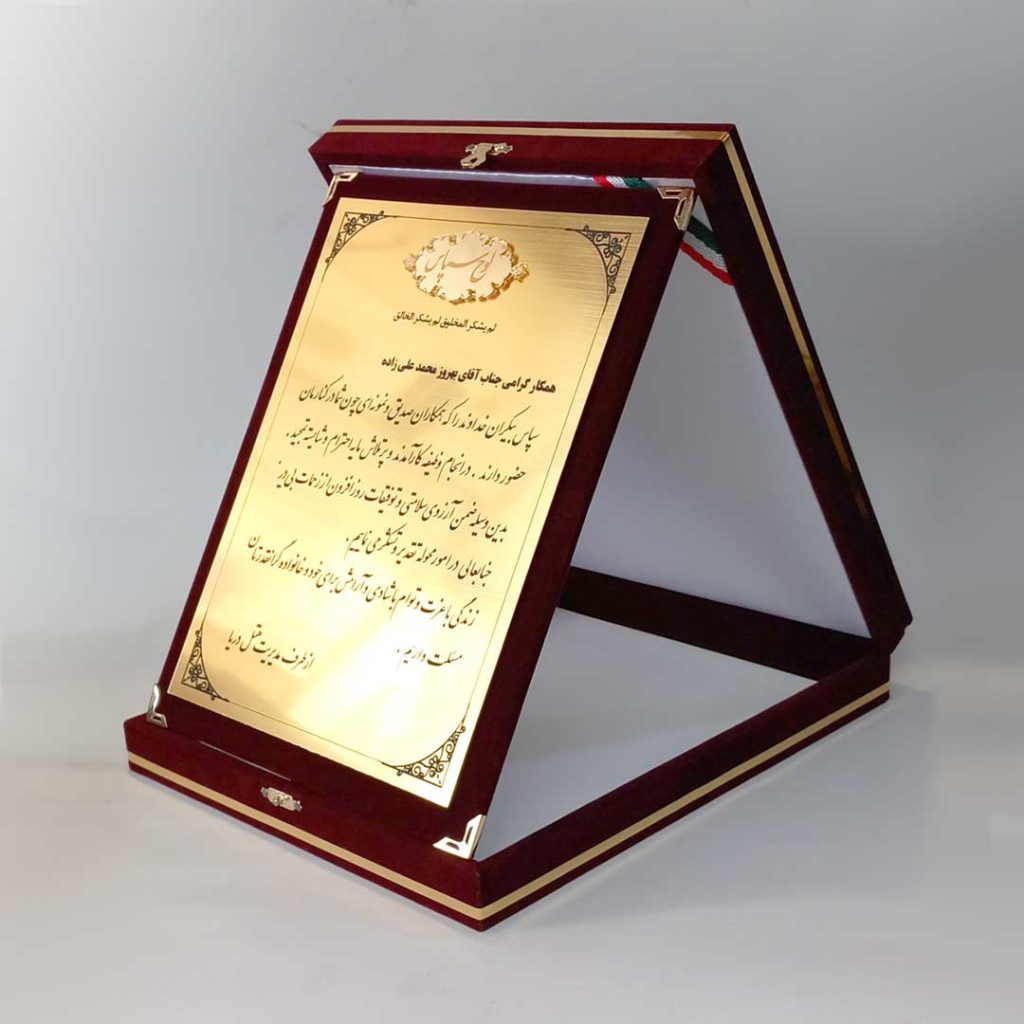 لوح سپاس
لم یشکر المخلوق لم یشکر الخالق
همکار گرامی جناب آقای بهروز محمد علی زاده
سپاس بیکران خداوند را که همکاران صدیق و نمونه ای چون شما در کنارمان
حضور دارند . در انجام وظیفه کارآمدند و پرتلاش مایه احترام و شایسته تمجید .
بدین وسیله ضمن آرزوی سلامتی و توفیقات روز افزون از زحمات بی دریغ
جنابعالی در امور محوله تقدیر و تشکر می نماییم .
زندگی با عزت و توام با شادی و آرامش برای خود و خانواده گرانقدرتان
مسئلت داریم .
از طرف مدیریت هتل دریا